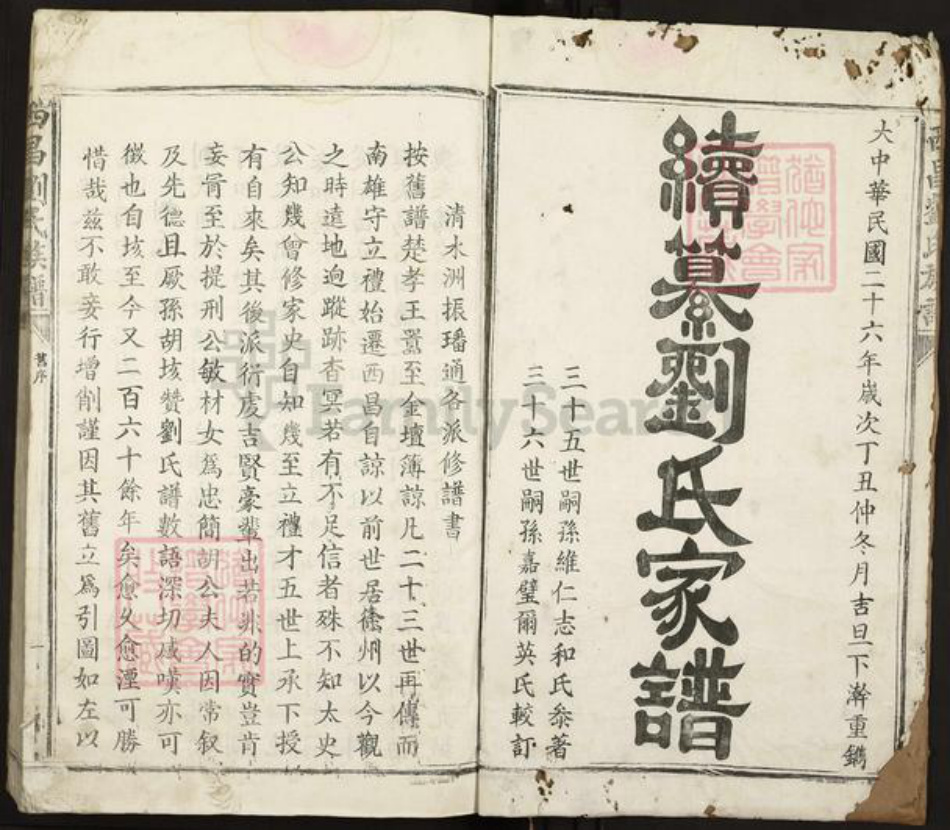 大中華民國二十六年歲次丁丑仲冬月吉旦下澣重鐫
續纂劉氏家譜
三十五世嗣孫維仁志和氏叅著
三十六世嗣孫嘉璧爾英氏較訂
清水洲振璠通各派修譜書
按舊譜楚孝王囂至金壇簿諒凡二十三世再傳而
南雄守立禮始遷西昌自諒以前世居徐州以今觀
之時遠地逈蹤跡杳冥若有不足信者殊不知太史
公知幾曾修家史自知幾至立禮才五世上承下授
有自來矣其後派衍虔吉賢豪輩出若州的實豈肯
妄冐至於提刑公敏材女爲忠簡胡公夫人因常叙
及先德且厥孫胡垓贊劉氏譜數語深切感嘆亦可
徵也自垓至今又二百六十餘年矣愈久愈湮可勝
惜哉兹不敢妄行增削謹因其舊立爲引圖如左以
西昌劉氏族譜
舊序
一
FamilySearch